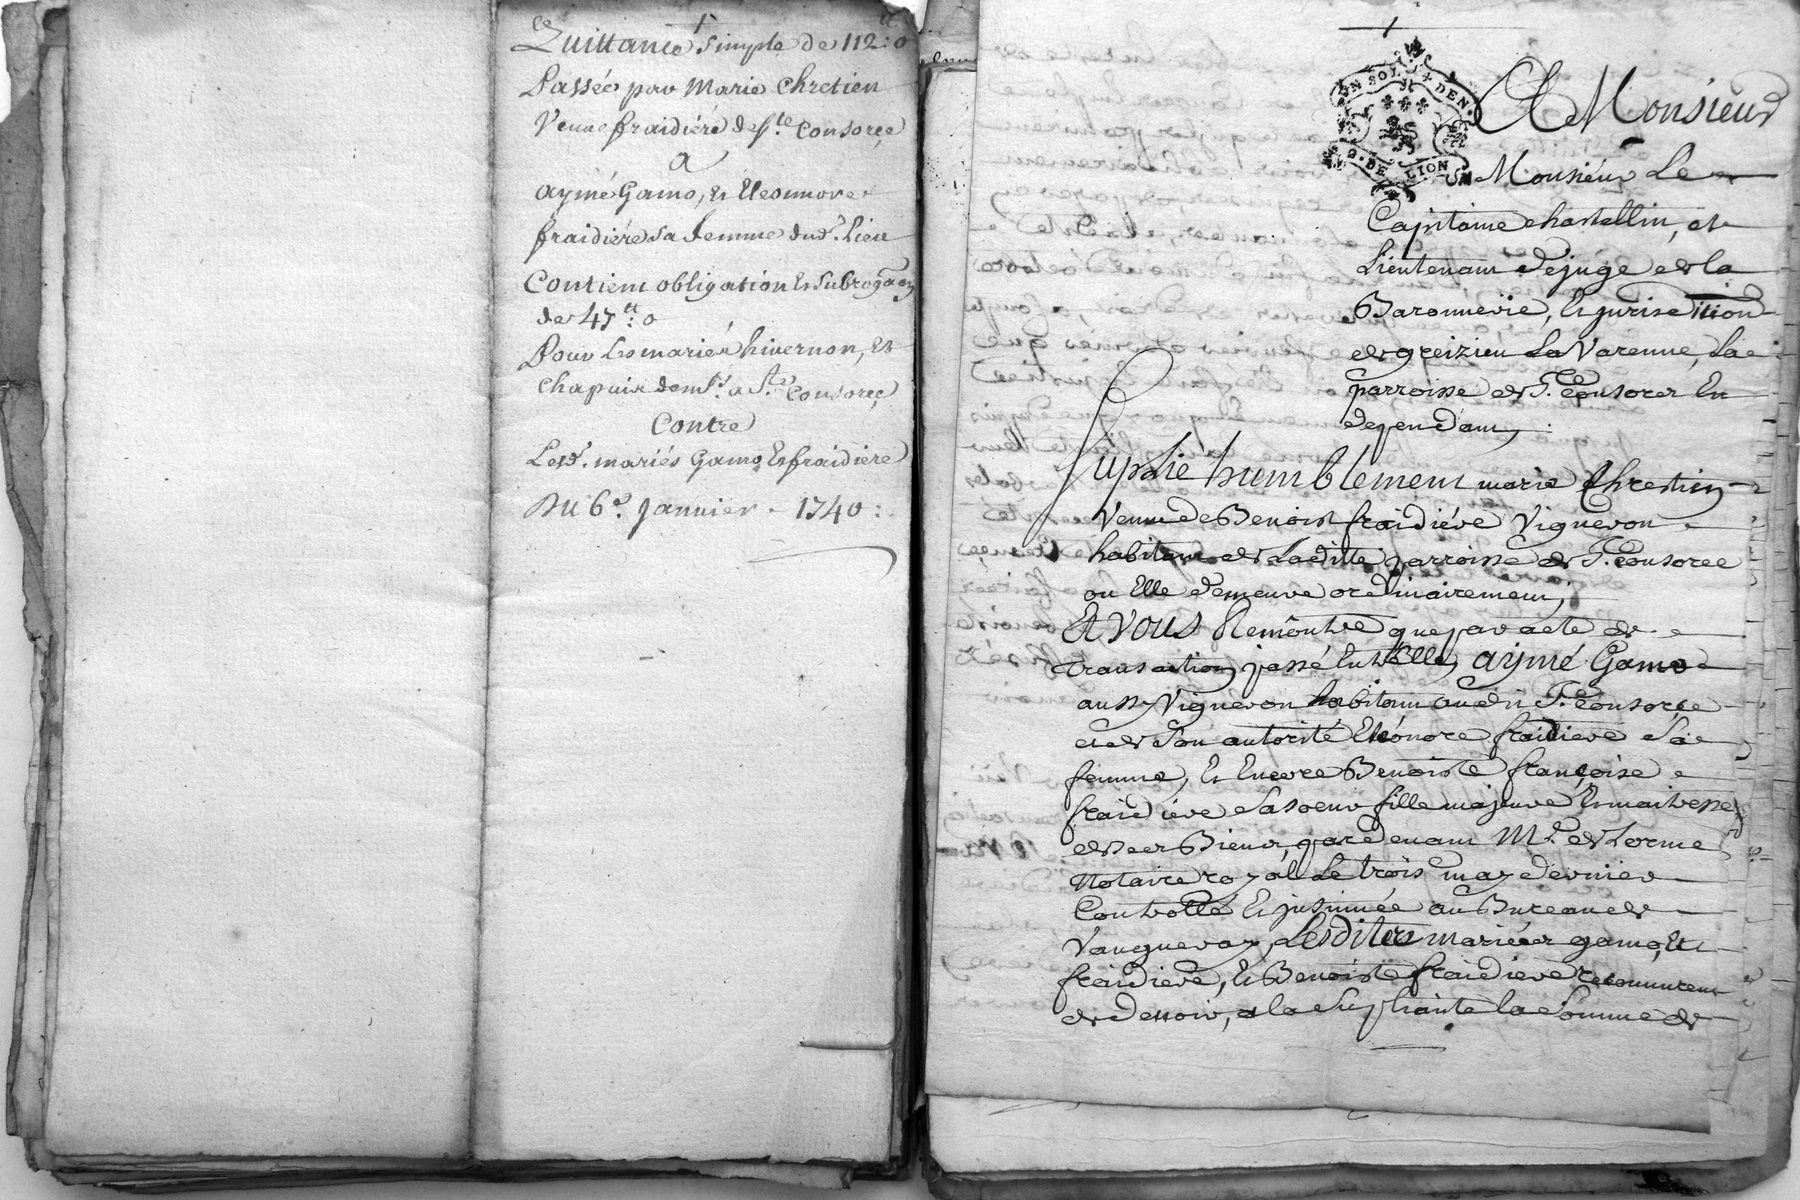 Quittance simple de 112:0
Passée par Marie Chretien
Veuve fraidiére de s.te Consorce
a
aymé Gamo, et Eleonnore
fraidiére sa femme dud. Lieu
Contient obligation et subrogaon
de 47tt: 0
Pour Les mariés hivernon, et
Chapuis dem.ts a S.te Consorce
Contre
Lesd. mariés Gamo et fraidiere
Du 6e. Janvier 1740:
UN SOL 4 DEN.
G. DE LION
A Monsieur
Monsieur Le
Capitaine chastellin, et
Lieutenant de juge de la
Baronnerie, et jurisdition
de greizieu La Varenne, La
parroisse de S.te Consorce en
dependant,
Suplie humblement marie Chrestien
Veuve de Benoist fraidiére Vigneron
habitant de Laditte parroisse de S.te Consorce
ou Elle demeure ordinairement,
Et Vous Remontre que par acte de
transaction passé Entre Elle, aymé Gamo
aussy Vigneron habitant audit S.te Consorce
et de son autorité Eléonore fraidiere sa
femme, et Encore Benoiste françoise
fraidiere sa soeur fille majeure et maitresse
de ses Biens, pardevant M.e de Lorme
Notaire royal Le trois may dernier
Controllé et insinuée au Bureau de
Vaugneray, Lesdites mariées gamo, et
fraidiere, et Benoiste fraidiere reconnurent
de devoir, a la supliante la somme de